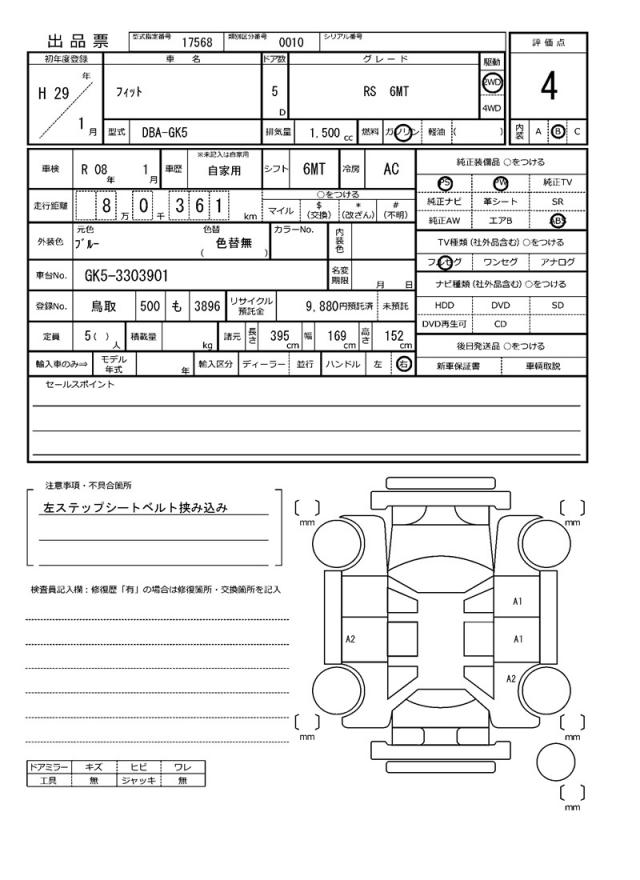 出品票 型式指定番号 17568 類別区分番号 0010 シリアル番号
評価点
4
内装 A B C
初年度登録 車名 ドア数 グレード 駆動
H 29 年 1 月
フィット
5 D
RS 6MT
2WD
4WD
型式 DBA-GK5 排気量 1.500 cc 燃料 ガソリン 軽油 ( )
車検 R 08 年 1 月 車歴 ※未記入は自家用 自家用 シフト 6MT 冷房 AC
走行距離 8 万 0 千 3 6 1 km
○をつける
マイル $(交換) *(改ざん) #(不明)
外装色 元色 ブルー 色替 ( 色替無 ) カラーNo. 内装色
車台No. GK5-3303901 名変期限 月 日
登録No. 鳥取 500 も 3896 リサイクル預託金 9,880円預託済 未預託
定員 5( ) 人 積載量 kg 諸元 長さ 395 cm 幅 169 cm 高さ 152 cm
輸入車のみ⇒ モデル年式 年 輸入区分 ディーラー 並行 ハンドル 左 右
純正装備品 ○をつける
PS PW 純正TV
純正ナビ 革シート SR
純正AW エアB ABS
TV種類 (社外品含む) ○をつける
フルセグ ワンセグ アナログ
ナビ種類 (社外品含む) ○をつける
HDD DVD SD
DVD再生可 CD
後日発送品 ○をつける
新車保証書 車輌取説
セールスポイント
注意事項・不具合箇所
左ステップシートベルト挟み込み
検査員記入欄：修復歴「有」の場合は修復箇所・交換箇所を記入
ドアミラー キズ ヒビ ワレ
工具 無 ジャッキ 無
mm
mm
A1
A2
A1
A2
mm
mm
mm